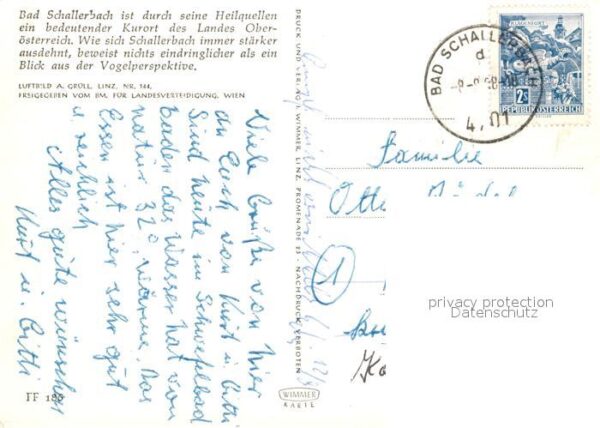 Bad Schallerbach ist durch seine Heilquellen
ein bedeutender Kurort des Landes Ober-
österreich. Wie sich Schallerbach immer stärker
ausdehnt, beweist nichts eindringlicher als ein
Blick aus der Vogelperspektive.
LUFTBILD A. GRÜLL, LINZ, NR. 144,
FREIGEGEBEN VOM BM. FÜR LANDESVERTEIDIGUNG, WIEN
Viele Grüße von hier
an Euch von Kurt u. Citti
Sind heute im Schwefelbad
baden das Wasser hat von
natur 32° wärme. Das
Essen ist hier sehr gut
u. reichlich
Alles gute wünschen
Kurt u. Citti
FF 186
DRUCK UND VERLAG WIMMER, LINZ, PROMENADE 23 · NACHDRUCK VERBOTEN
WIMMER
KARTE
BAD SCHALLERBACH
d
4701
KLAGENFURT
2S
REPUBLIK ÖSTERREICH
Familie
Otto
privacy protection
Datenschutz